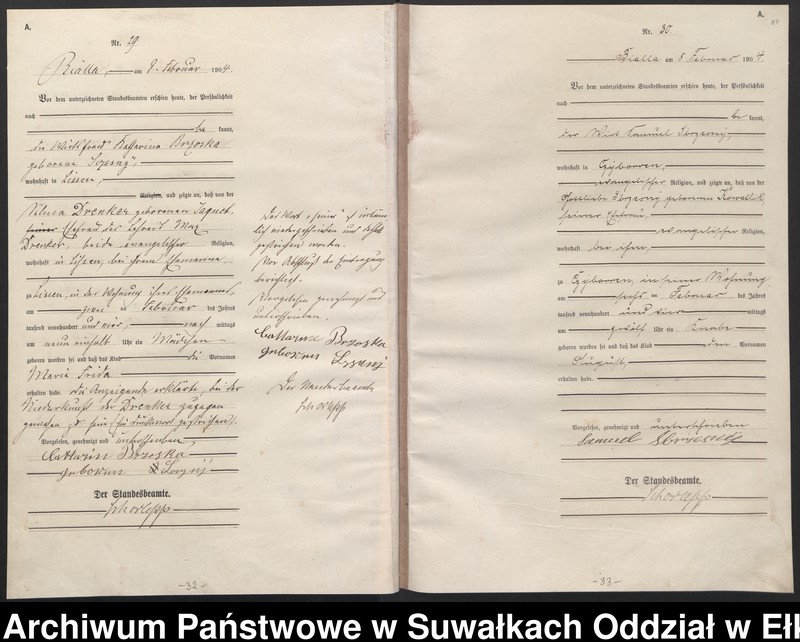 A.
Nr. 29
Bialla, am 8. Februar 1904.
Vor dem unterzeichneten Standesbeamten erschien heute, der Persönlichkeit
nach
be kannt,
die Wirthsfrau Katharina Brzoska
geborene
wohnhaft in Lissen,
Religion, und zeigte an, daß von der
Wilma Drenker geborenen
seiner Ehefrau des Lehrers Max
Drenker, beide evangelischer Religion,
wohnhaft in Lissen, bei ihrem Ehemanne
zu Lissen, in der Wohnung ihres Ehemannes,
am zwei ten Februar des Jahres
tausend neunhundert und vier, nach mittags
um neun einhalb Uhr ein Mädchen
geboren worden sei und daß das Kind die Vornamen
Marie Frida
erhalten habe. Die Anzeigende erklärte, bei der
Niederkunft der Drenker zugegen
gewesen zu sein.
Vorgelesen, genehmigt und unterschrieben
Catharin Brzoska
geborenn
Der Standesbeamte.
Schorlepp
-32-
Das Wort "seiner" ist
und deshalb
gestrichen worden.
Vor Abschluß der Eintragung
berichtigt.
Vorgelesen, genehmigt und
unterschrieben.
Catharine Brzoska
geborenn
Der Standesbeamte
Schorlepp
A.
Nr. 30
Bialla am 8 Februar 1904.
Vor dem unterzeichneten Standesbeamten erschien heute, der Persönlichkeit
nach
be kannt,
der Wirt Samuel
wohnhaft in
evangelischer Religion, und zeigte an, daß von der
Gottliebe geborenen Kowallik,
seiner Ehefrau,
evangelischer Religion,
wohnhaft bei ihm,
zu in seiner Wohnung
am sechs ten Februar des Jahres
tausend neunhundert und vier mittags
um zwölf Uhr ein Knabe
geboren worden sei und daß das Kind den Vornamen
August
erhalten habe.
Vorgelesen, genehmigt und unterschrieben
Samuel
Der Standesbeamte.
Schorlepp
-33-
Archiwum Państwowe w Suwałkach Oddział w Eł